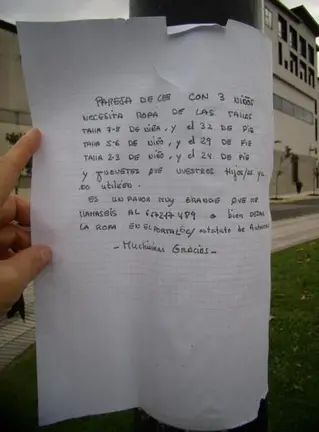 PAREJA DE CES CON 3 NIÑOS
NECESITA ROPA DE LAS TALLAS
TALLA 7-8 DE NIÑA, y el 32 DE PIE
TALLA 5-6 DE NIÑO, y el 29 DE PIE
TALLA 2-3 DE NIÑO, y el 24 DE PIE
y JUGUETES QUE VUESTROS HIJOS/AS YA
NO UTILICEN.
ES UN FAVOR MUY GRANDE QUE OS
LLAMASEIS AL 617217499 o bien DEJAR
LA ROPA EN EL PORTAL de/ estatuto de
- Muchísimas Gracias -